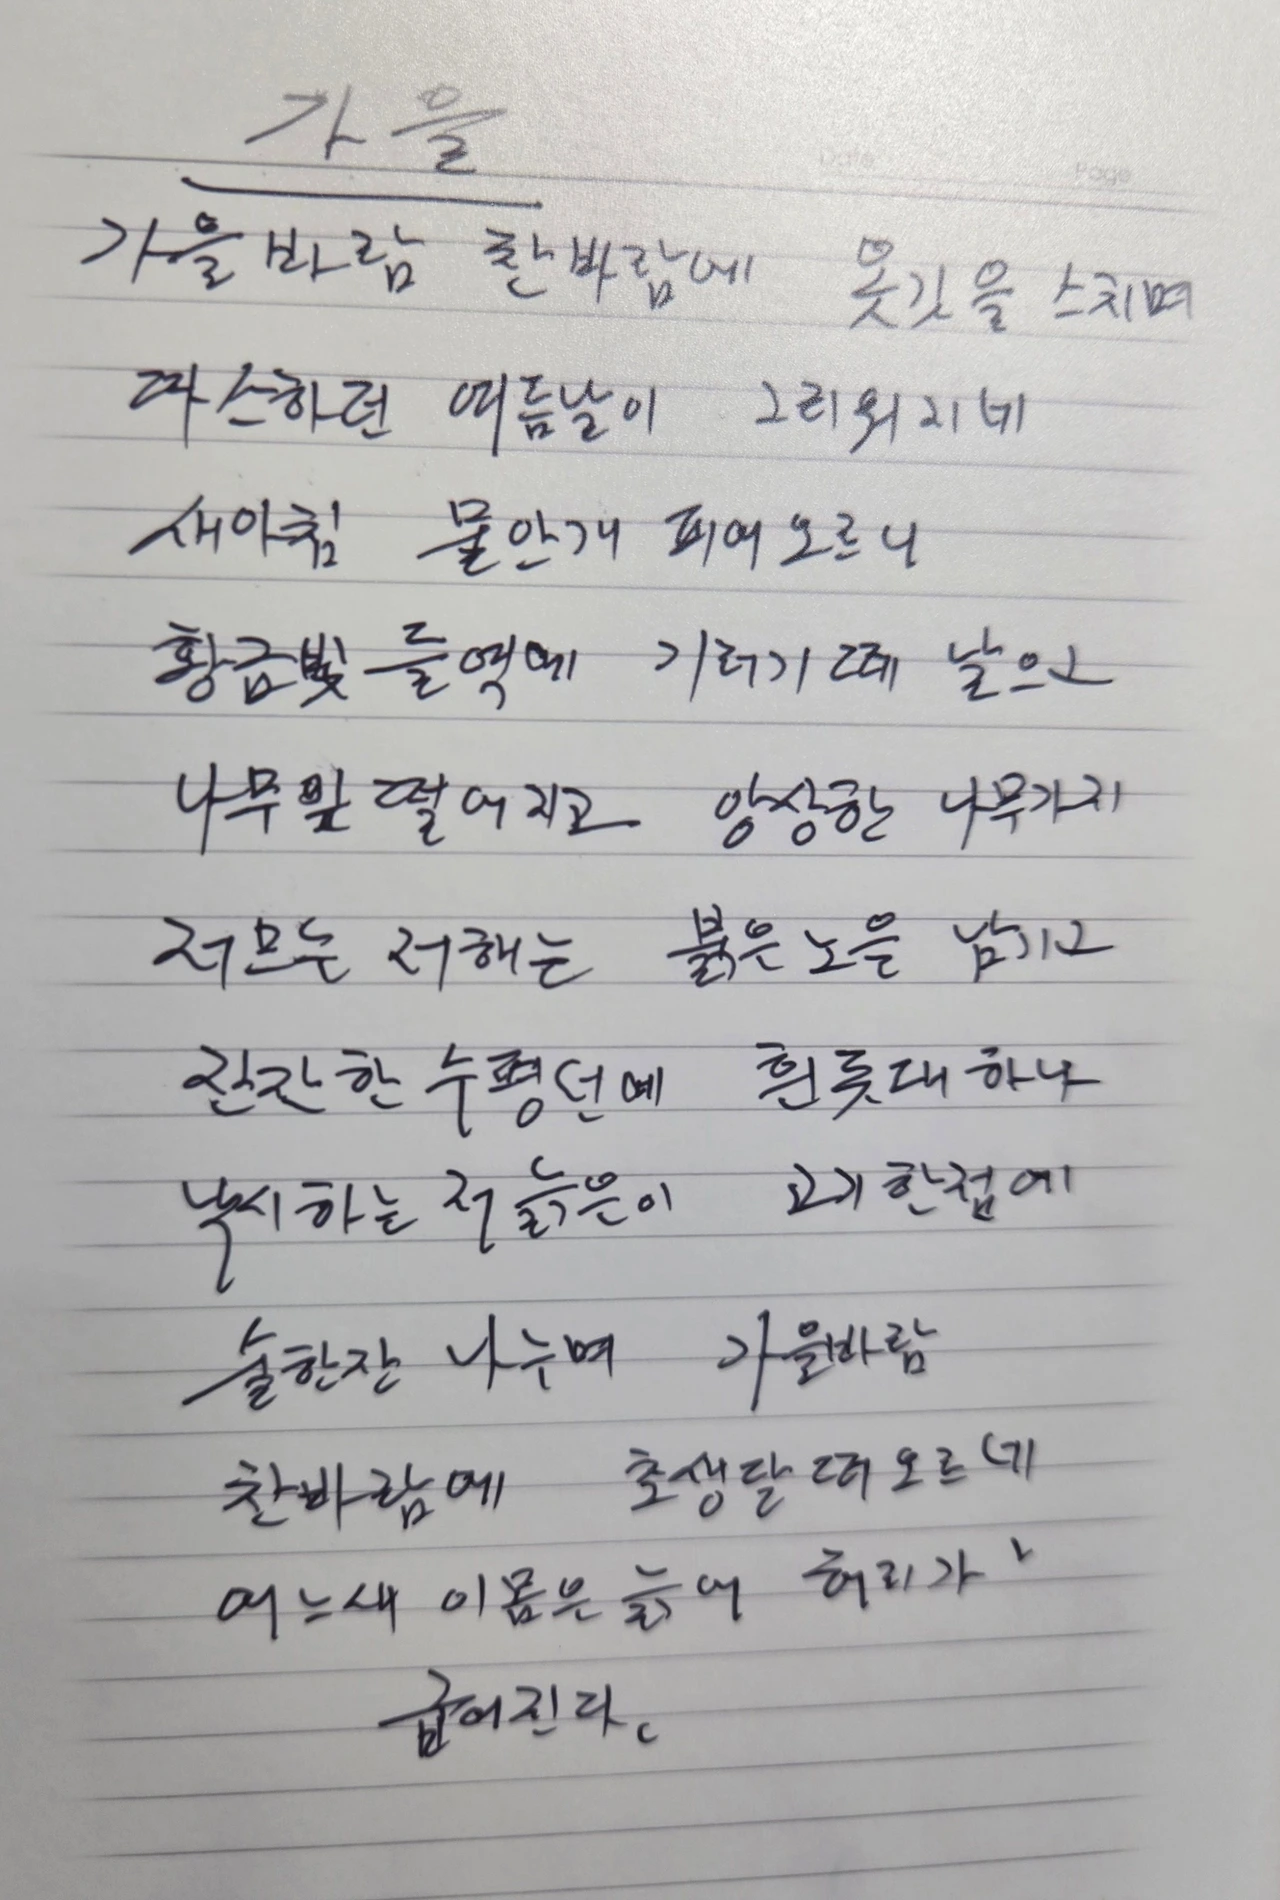 가을
Date Page
가을바람 찬바람에 옷깃을 스치며
따스하던 여름날이 그리워지네
새아침 물안개 피여오르니
황금빛 들역에 기러기떼 날으고
나무잎 떨어지고 앙상한 나무가지
저모는 저해는 붉은노을 남기고
잔잔한 수평선에 흰돛대 하나
낚시하는 저 늙은이 고기한점에
술한잔 나누며 가을바람
찬바람에 초생달 떠오르네
어느새 이몸은 늙어 허리가
굽어진다.